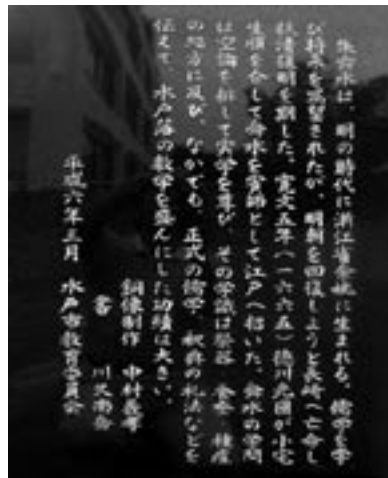 朱舜水は、明の時代に浙江省余姚に生まれる。儒学を学
び将来を嘱望されたが、明朝を回復しようと長崎へ亡命し
抗清復明を期した。寛文五年(一六六五)徳川光圀が小宅
生順を介して舜水を賓師として江戸へ招いた。舜水の学問
は空論を排して実学を尊び、その学識は祭器 養蚕 種痘
の処方に及び、なかでも、正式の儒学、釈典の礼法などを
伝えて、水戸藩の教学を盛んにした功績は大きい。
銅像制作 中村義孝
書 川又南岳
平成六年三月 水戸市教育委員会